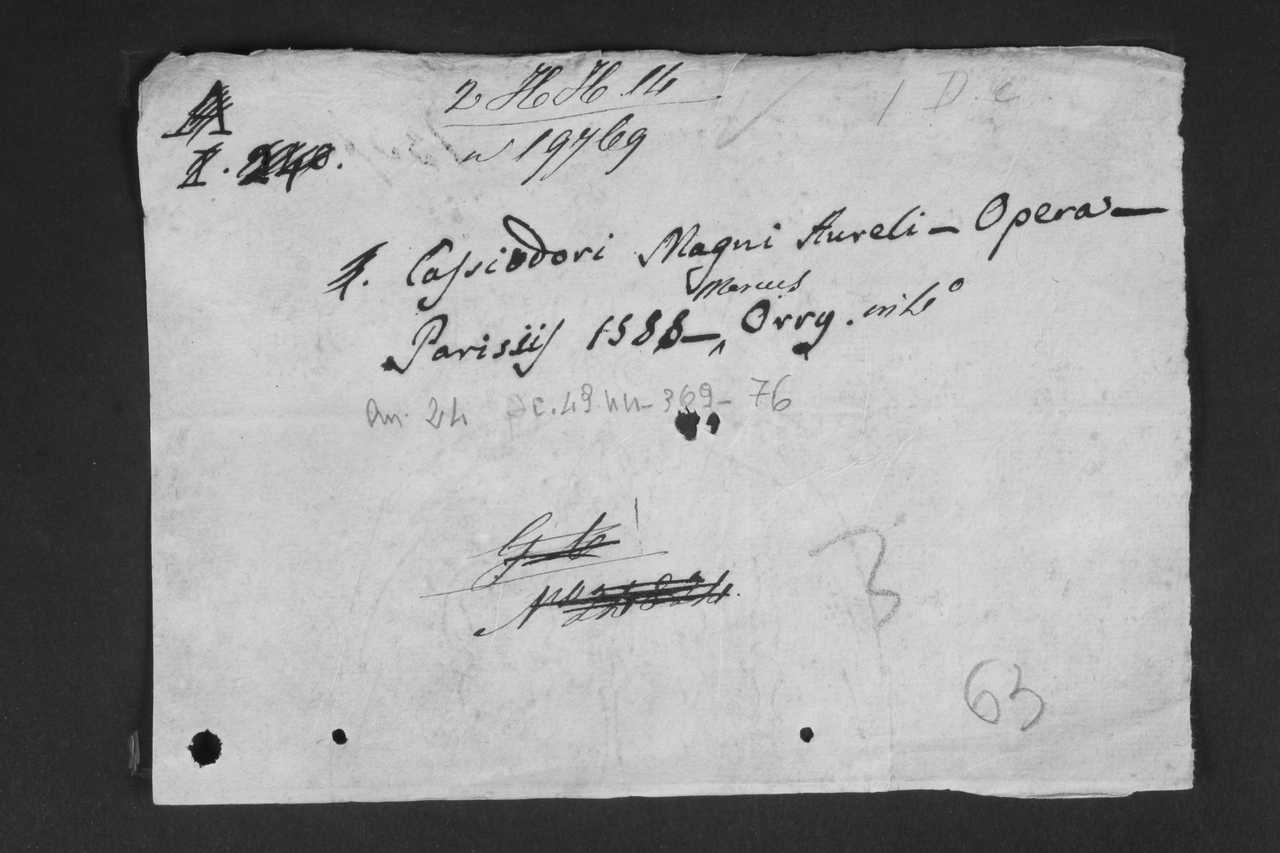 A
2 HH. 14
I. 240.
n 19769
1 D.c
1. Cassiodori Magni Aureli - Opera -
Marcus
Parisiis 1588 - Orry. in 4º
an. 24 c.49 nn - 369 - 76
G 4
Nº
3
63